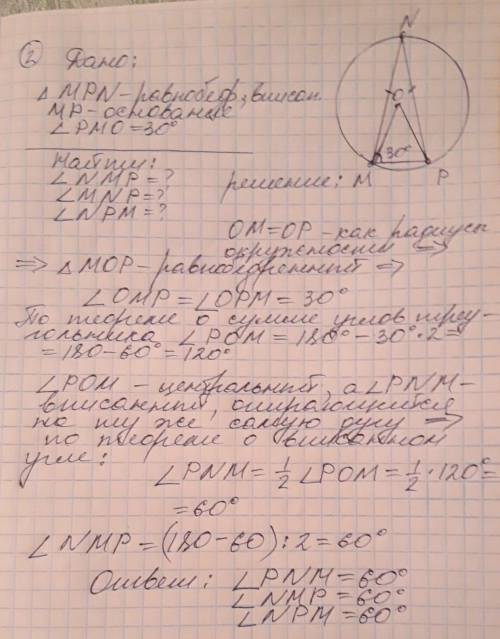 ② Дано:
△ MPN - равнобедр, вписан.
MP - основание
∠PMO = 30°
Найти:
∠NMP = ?
∠MNP = ?
∠NPM = ?
N
O
30°
M
P
решение:
OM = OP - как радиусы
окружности ⇒
⇒ △MOP - равнобедренный ⇒
∠OMP = ∠OPM = 30°
По теореме о сумме углов треу-
гольника ∠POM = 180° - 30° · 2 =
= 180 - 60° = 120°
∠POM - центральный, а ∠PNM -
вписанный, опирающийся
на ту же самую дугу ⇒
по теореме о вписанном
угле:
∠PNM = 1/2 ∠POM = 1/2 · 120° =
= 60°
∠NMP = (180 - 60) : 2 = 60°
Ответ: ∠PNM = 60°
∠NMP = 60°
∠NPM = 60°